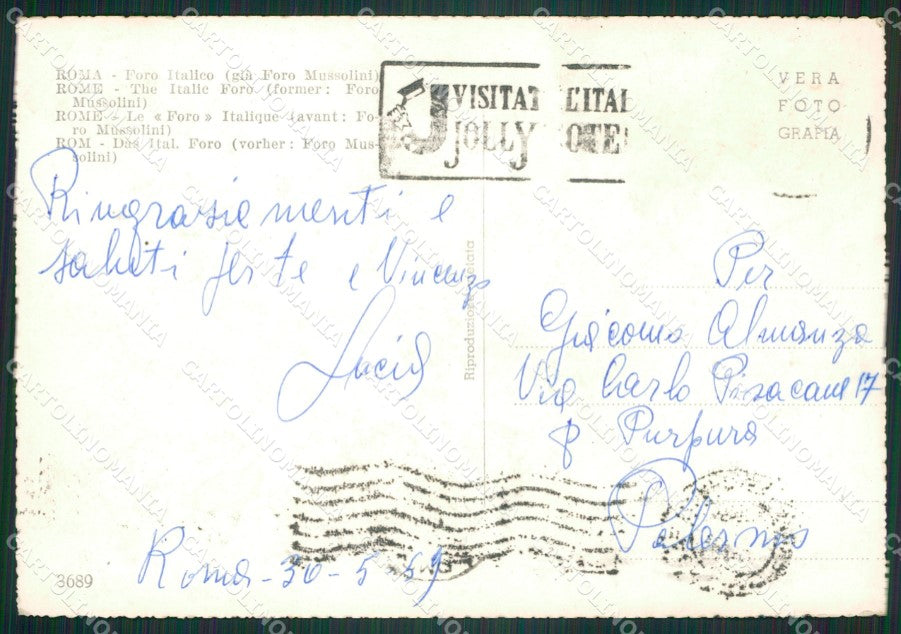 ROMA - Foro Italico (già Foro Mussolini)
ROME - The Italic Foro (former: Foro
Mussolini)
ROME - Le « Foro » Italique (avant: Fo-
ro Mussolini)
ROM - Das Ital. Foro (vorher: Foro Mus-
solini)
VISITAT L'ITAL
JOLLY OTE
VERA
FOTO
GRAFIA
Ringraziamenti e
saluti e Vincenzo
Lucia
Riproduzione vietata
Per
Giacomo Almanza
Via Carlo Pisacane 17
P Purpura
Palermo
Roma - 30 - 5 59
3689
CARTOLINOMANIA